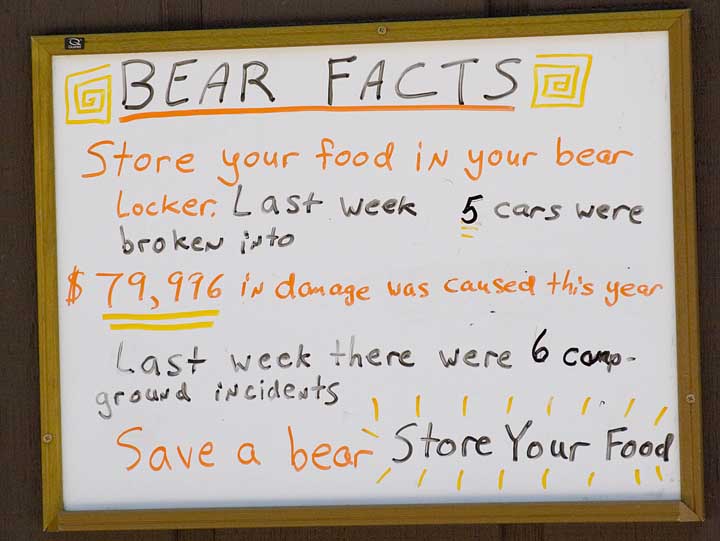 BEAR FACTS
Store your food in your bear
Locker. Last week 5 cars were
broken into
$ 79,996 in damage was caused this year
Last week there were 6 camp-
ground incidents
Save a bear Store Your Food